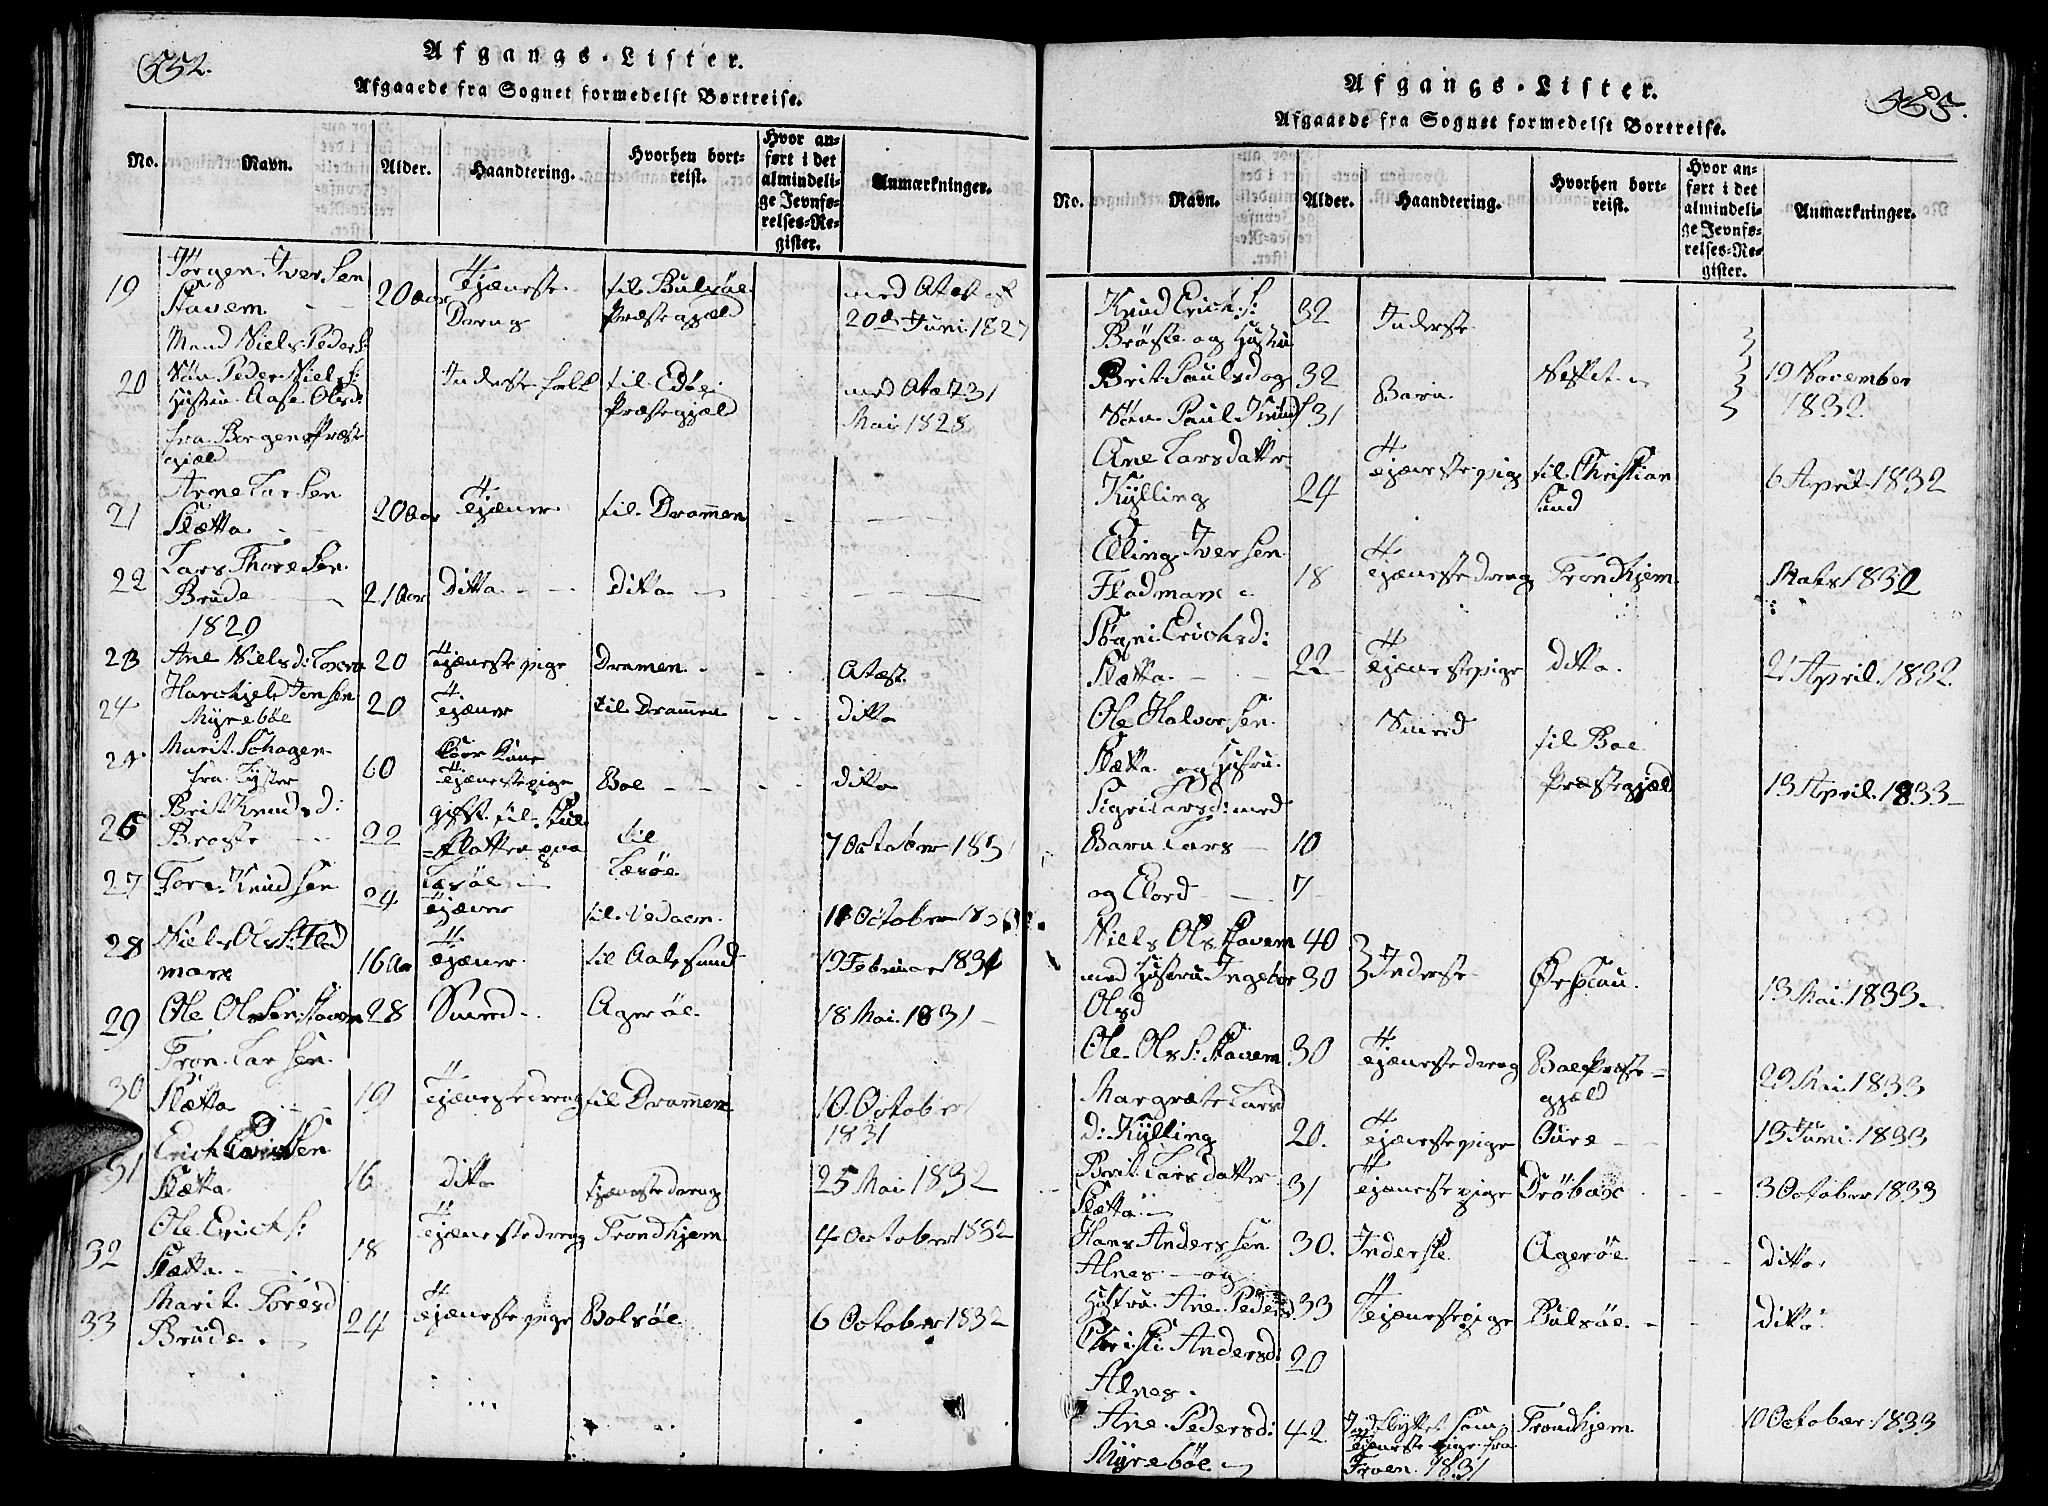 552.
Afgangs-Lister.
Afgaaede fra Sognet formedelst Bortreise.
No. Navn. Alder. Haandtering. Hvorhen bortreist. Hvor anført i det almindelige Jevnførelses-Register. Anmærkninger.
19 Jørgen Iversen Stavem 20 Aar Tjæneste Dreng til Bulsøe Præstegjæld med Atest af 20de Juni 1827
20 Mand Niels Peders: Søn Peder Niels: Hustru Aase Olsd: fra Borgens Præstegjæld Inderste folk til Edøe Præstegjæld med Atest 31 Mai 1828
21 Arne Larsen Slætta 20 Aar Tjæner til Drammen
22 Lars Thoresen Brude 21 Aar Ditto Ditto
1829
23 Ane Nielsd: 20 Tjænestepige Dramen Atæst
24 Jonsen Myrebøe 20 Tjæner til Drammen ditto
Marit fra Lyster 60 Tjænestepige Boe ditto
26 Brit Knudsd: Brøste 22 gift til til Læsøe 7 October 183
27 Tore Knudsen 24 Tjæner til October
28 Niels Ols: Fladmark 16 Aar Tjæner til Aalesund 19 Februar 1831
29 Ole Olsen Staven 28 Smed Agerøe 18 Mai 1831
30 Tron Larsen Slætta 19 Tjænestedreng til Drammen 10 October 1831
31 Erich Slætta 16 ditto tjænestedreng 25 Mai 1832
32 Ole Erichs: Slætta 18 Tjænestedreng Trondhjem 4 October 1832
33 Marit Toresd Brude 24 Tjænestepige Bolsøe 6 October 1832
Afgangs-Lister.
Afgaaede fra Sognet formedelst Bortreise.
No. Navn. Alder. Haandtering. Hvorhen bortreist. Hvor anført i det almindelige Jevnførelses-Register. Anmærkninger.
Knud Erichs: Brøste og Hustru 32 Inderste
Brit Paulsdag 32 Næsset 19 November 1832
Søn Paul Knuds 31 Barn
Ane Larsdatter Kylling 24 Tjænestepige til Christiansund 6 April 1832
Elling Iversen Fladmark 18 Tjænestedreng Trondhjem 1832
Søgni Erichsd: Slætta 22 Tjænestepige ditto 21 April 1832
Ole Halvorsen Slætta og Hustru Smed til Boe Præstegjæld 13 April 1833
Sigri Larsd: med
Barn Lars 10
og Elord 7
Niels Ols Stavem 40
med Hustru Ingebor Olsd 30 Inderste Ørschou 13 Mai 1833
Ole Ols: Stavem 30 Tjænestedreng Boe Præstegjæld 29 Mai 1833
Margræte Larsd: Kylling 20. Tjænestepige Oure 13 Juni 1833
Brit Larsdatter Slætta 31 Tjænestepige Drøbak 3 October 1833
Hans Anderssen Alnes og 30. Inderste Agerøe ditto
Hustru Ane Pedersd 33 Tjænestepige Bulsøe ditto
Christi Andersd: Alnes 20
Ane Pedersd: Myrebøe 42 Indflyttet som Tjænestepige fra Froen 1831 Trondhjem 10 October 1833